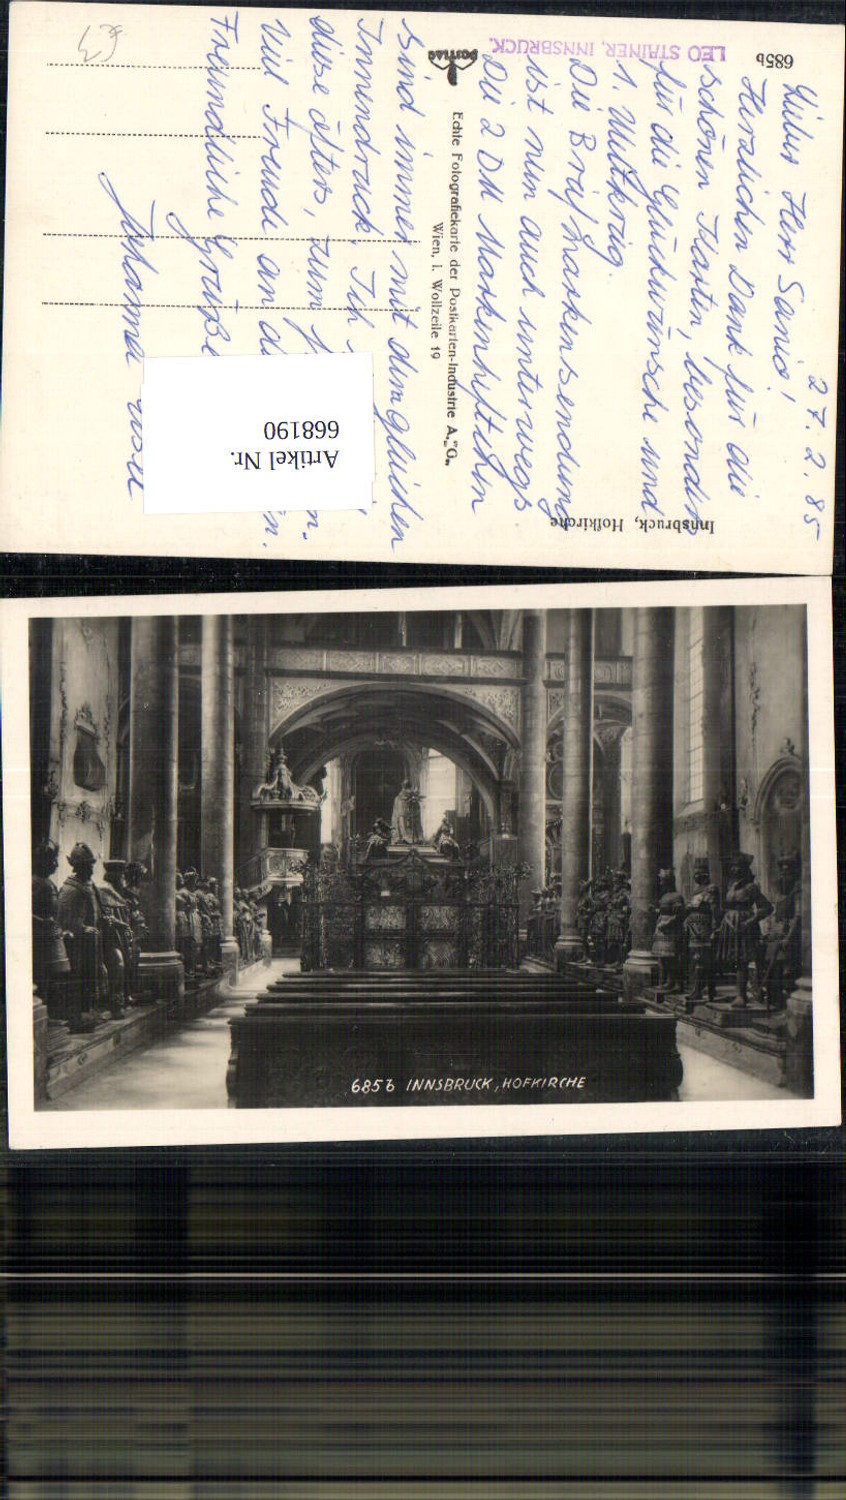 27.2.85
Lieber Herr Sanio!
Herzlichen Dank für die
schönen Karten, besonders
für die Glückwünsche und
1. Weltkrieg.
Die Briefmarkensendung
ist nun auch unterwegs.
Die 2 DM Markenheftchen
sind immer mit dem gleichen
Innendruck. Ich
diese öfters, zum
Viel Freude an
Freundliche Grüße
Johanna
685b
LEO STAINER, INNSBRUCK.
POSTIAG
Echte Fotografiekarte der Postkarten-Industrie A.„G„
Wien, I. Wollzeile 19
Innsbruck, Hofkirche
Artikel Nr.
668190
685b INNSBRUCK, HOFKIRCHE